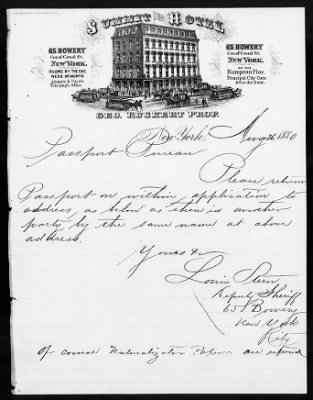 SUMMIT HOTEL
65 BOWERY
Cor. of Canal St.
NEW YORK.
ROOMS BY THE DAY,
WEEK OR MONTH
Atlantic & Pacific
Telegraph Office
65 BOWERY
Cor. of Canal St.
NEW YORK.
ON THE
European Plan.
Principal City Cars
Pass the Door.
GEO. RUCKERT PROP.
New York, Aug 26 1880
Passport Bureau
Please return
Passport on within application to
address, as below as there is another
party by the same name at above
address.
Yours &c
Louis Stern
Deputy Sheriff
65 Bowery
New York
City
Of course Naturalization Papers are refund